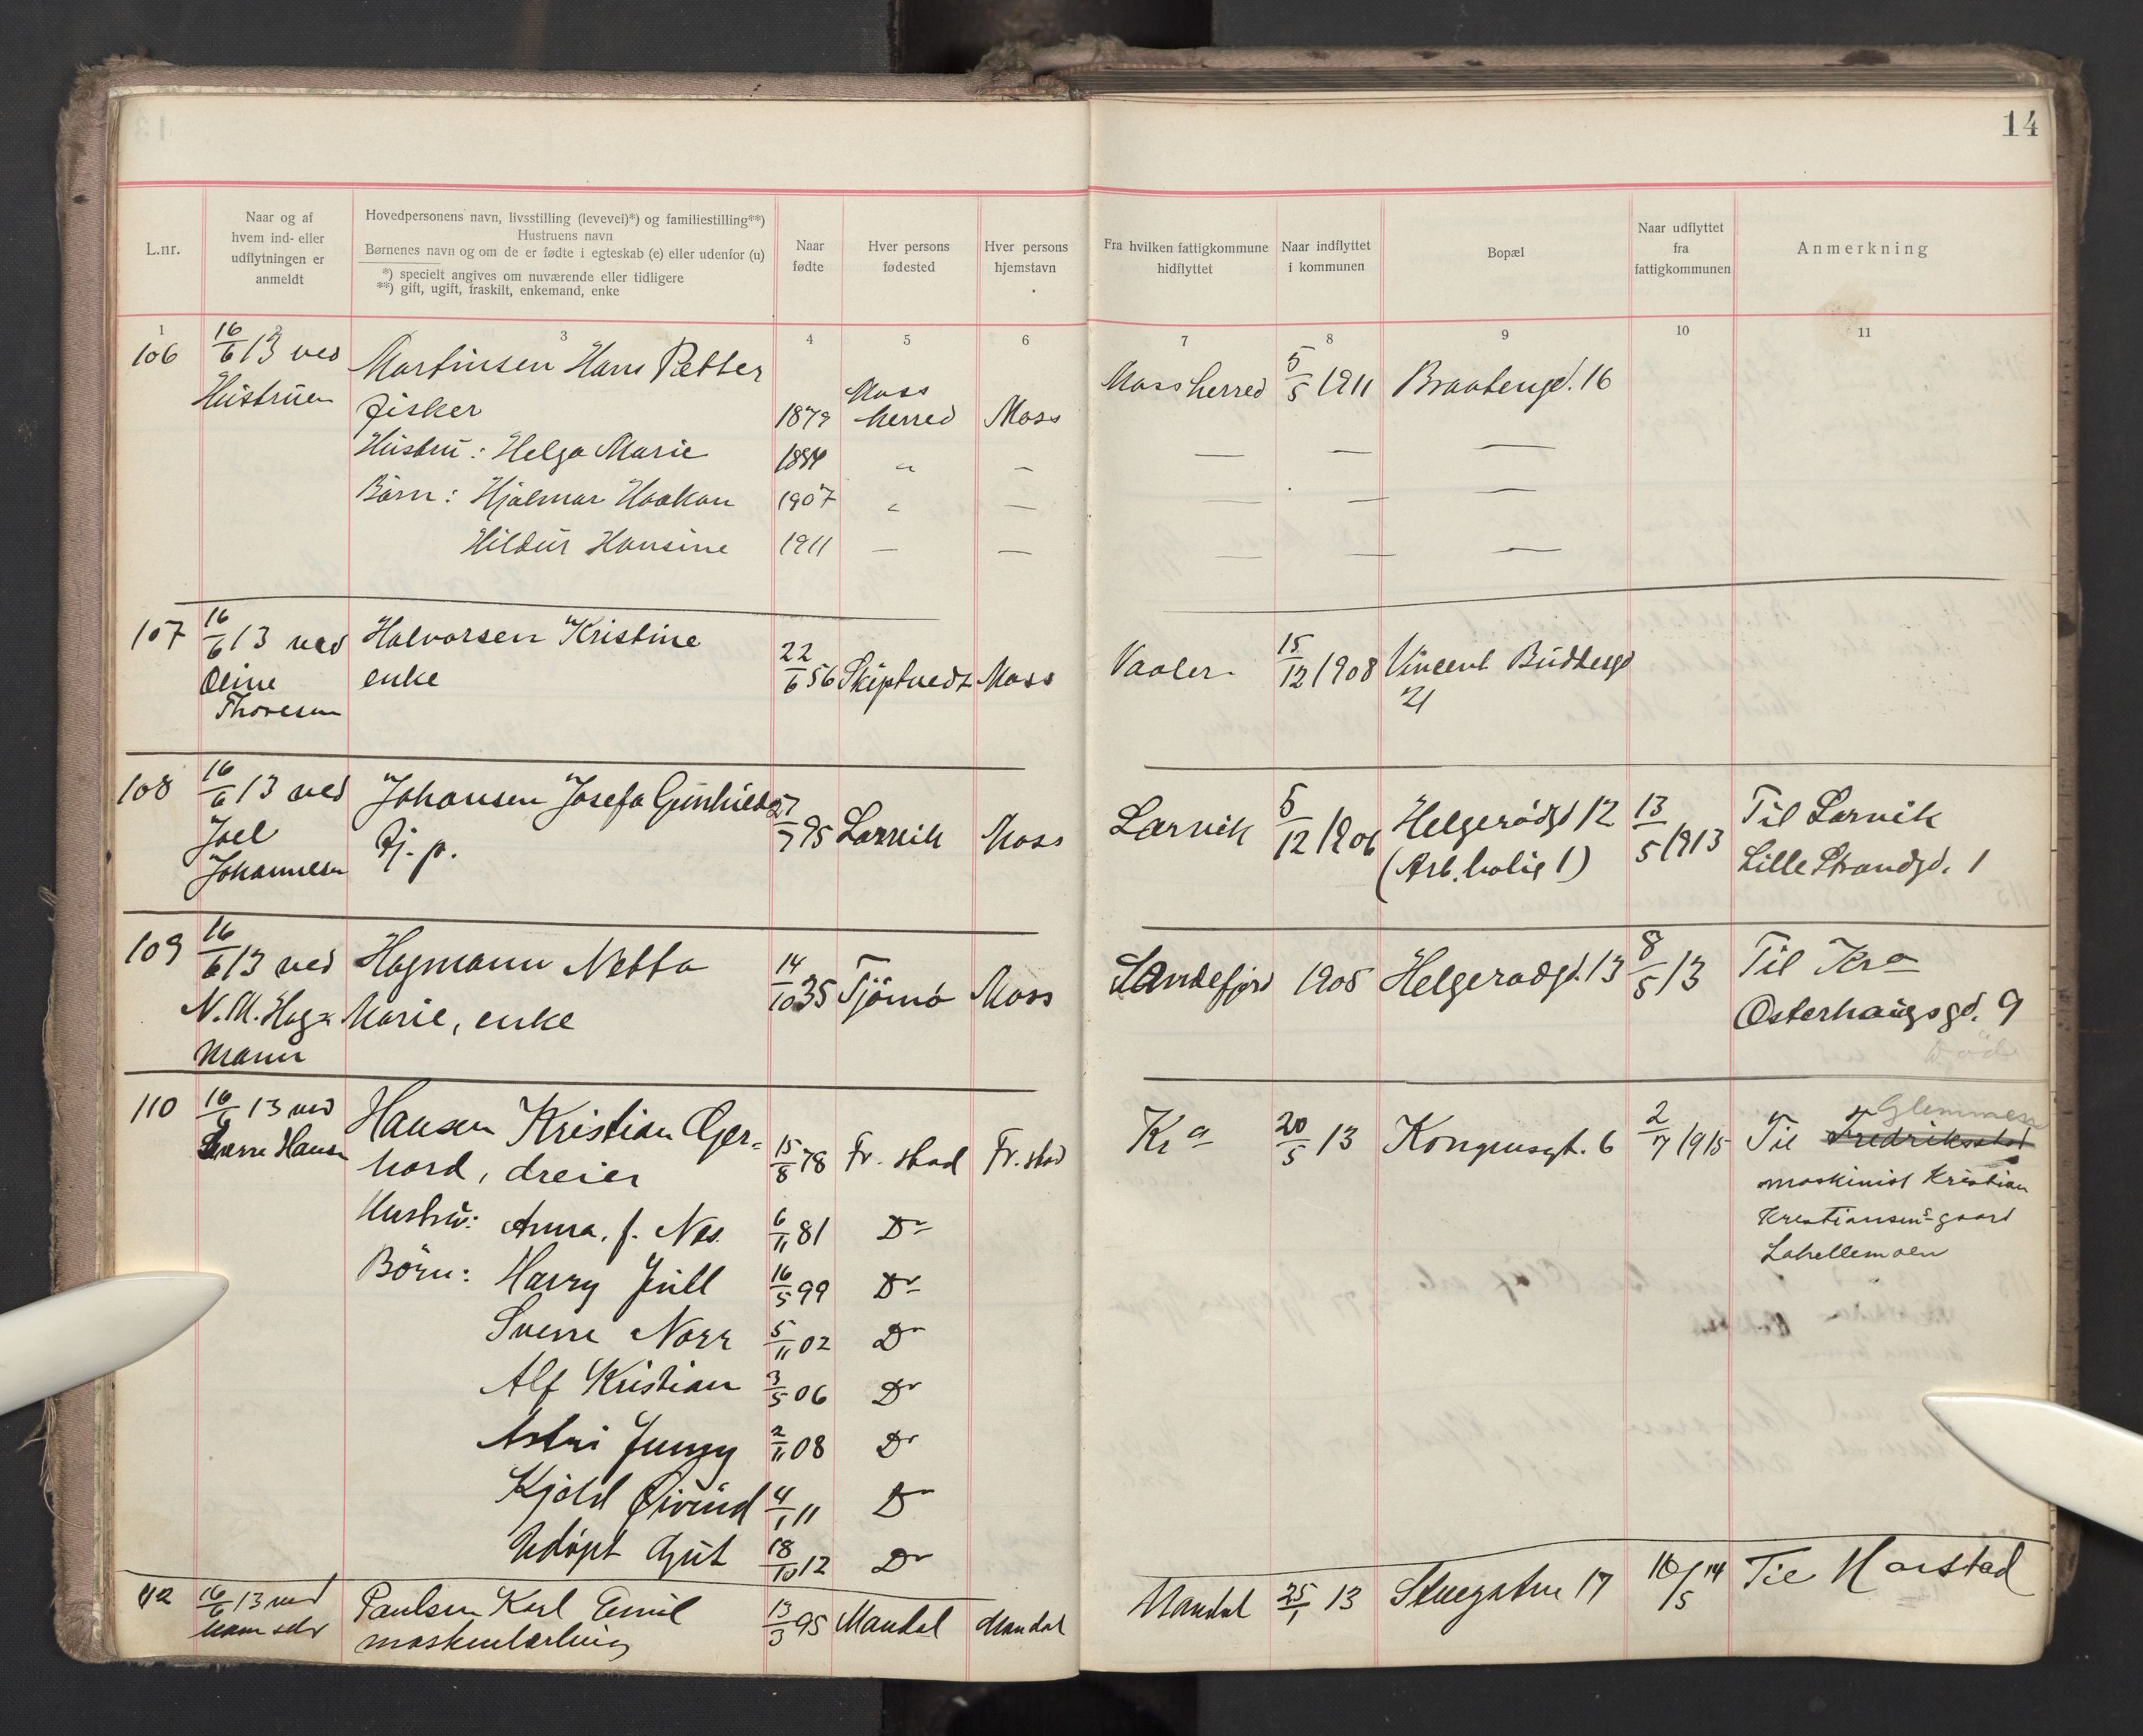 14
L.nr.
Naar og af
hvem ind- eller
udflytningen er
anmeldt
Hovedpersonens navn, livsstilling (levevei)*) og familiestilling**)
Hustruens navn
Børnenes navn og om de er fødte i egteskab (e) eller udenfor (u)
*) specielt angives om nuværende eller tidligere
**) gift, ugift, fraskilt, enkemand, enke
Naar
fødte
Hver persons
fødested
Hver persons
hjemstavn
Fra hvilken fattigkommune
hidflyttet
Naar indflyttet
i kommunen
Bopæl
Naar udflyttet
fra
fattigkommunen
Anmerkning
1 2 3 4 5 6 7 8 9 10 11
106 16/6 13 ved Martinsen Hans Petter
Hustruen Fisker 1879 Moss herred Moss Moss herred 5/5 1911 Braatengd. 16
Hustru: Helga Marie 1884 " — — — —
Børn: Hjalmar Haakon 1907 " — — — —
Hildur Hansine 1911 — — — — —
107 16/6 13 ved Halvorsen Kristine
Oline enke 22/6 56 Skiptvedt Moss Vaaler 15/12 1908 Vincent Buddesgd
Thoresen 21
108 16/6 13 ved Johansen Josefa Gunhilda 27/7 95 Larvik Moss Larvik 5/12 1906 Helgerödgt 12 13/5 1913 Til Larvik
Joel Fj. p. (Arb. bolig 1) Lille Strandgd. 1
Johannesen
109 16/6 13 ved Hagmann Netta 14/10 35 Tjømø Moss Sandefjord 1905 Helgerødgt. 13 8/5 13 Til Kra
N. M. Hag= Marie, enke Osterhaugsgd. 9
mann
Död
110 16/6 13 ved Hansen Kristian Ger= Kra 20/5 13 Kongensgt. 6 2/7 1915 Til Fredriksstad Glemmen
Sverre Hansen hard, dreier 15/8 78 Fr. stad Fr. stad maskinist Kristian
Hustru: Anna, f. Næs. 6/11 81 Do Kristiansens gaard
Børn: Harry Juell 16/5 99 Do Lahellemoen
Sverre Norr 5/11 02 Do
Alf Kristian 3/5 06 Do
Astri Jenny 2/11 08 Do
Kjeld Øivind 4/1 11 Do
Udøpt Gut 18/10 12 Do
112 16/6 13 ved Paulsen Karl Emil 13/3 95 Mandal Mandal Mandal 25/1 13 Skuegaten 17 16/5 14 Til Harstad
ham selv maskinlærling